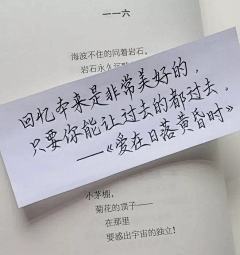 一一六
海波不住的问着岩石,
岩石永久沉默
回忆本来是非常美好的,
只要你能让过去的都过去。
——《爱在日落黄昏时》
小茅棚,
菊花的顶子——
在那里
要感出宇宙的独立!